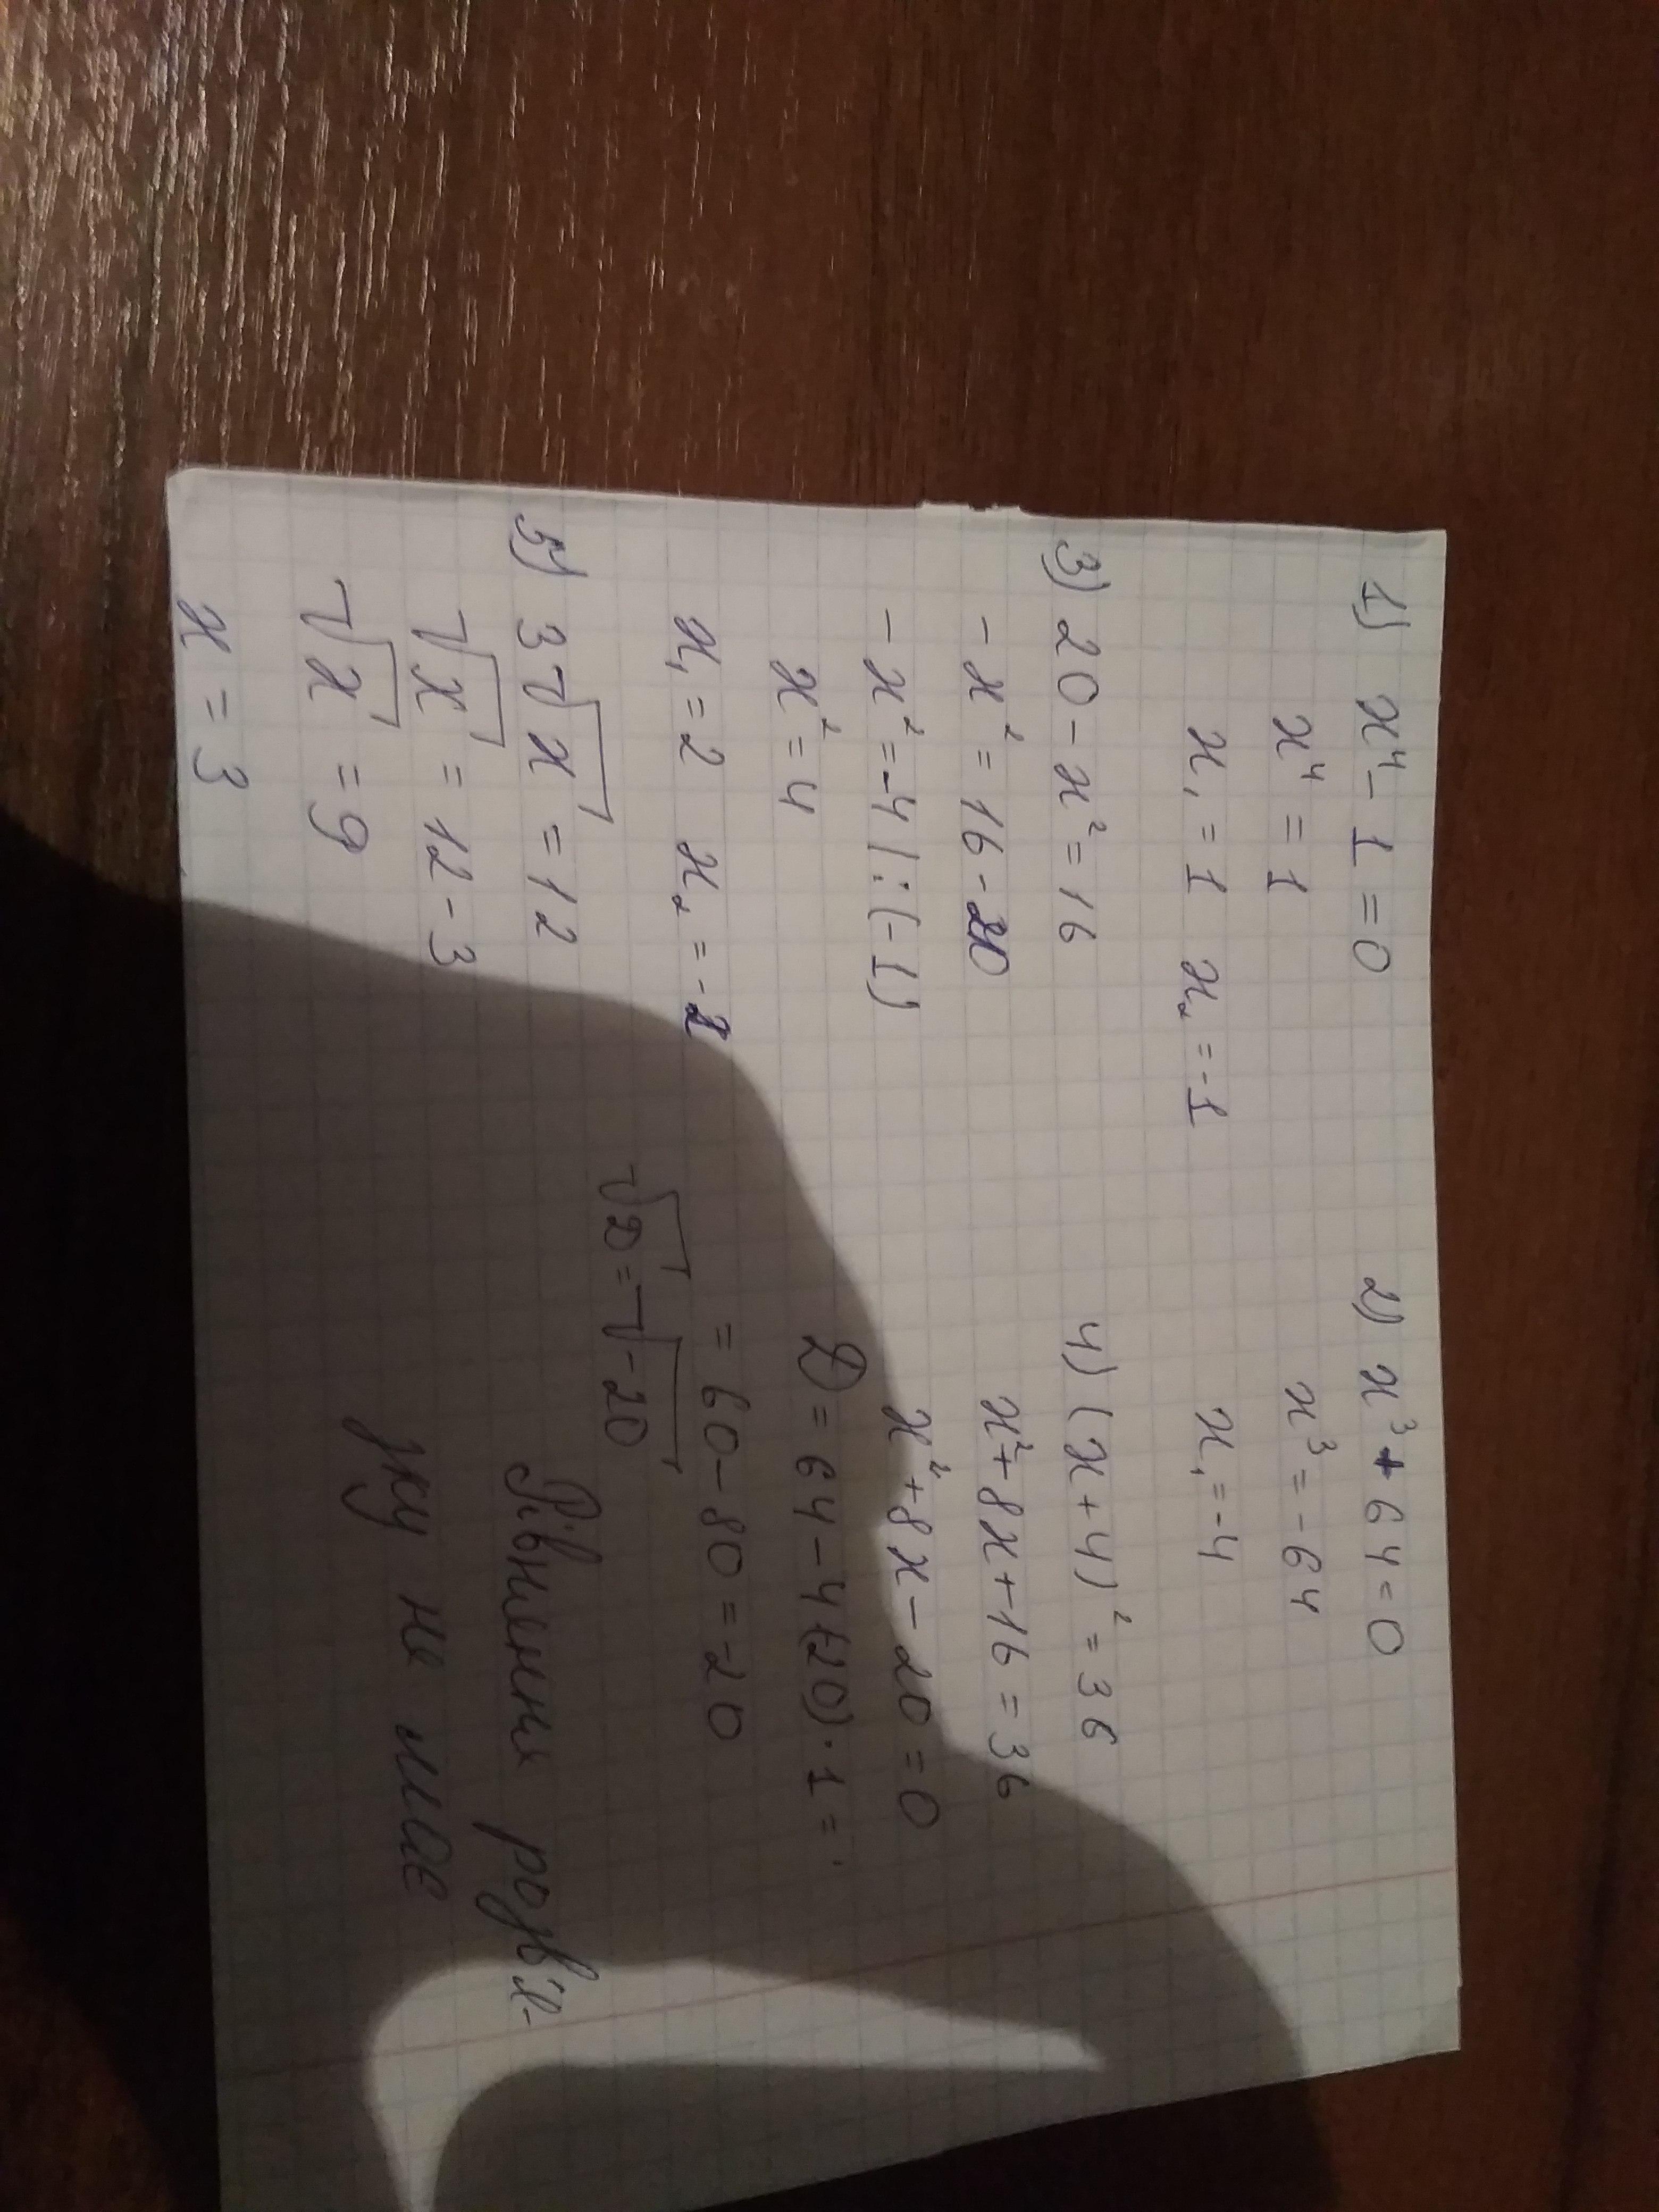 1) x⁴ - 1 = 0
x⁴ = 1
x₁ = 1 x₂ = -1
2) x³ + 64 = 0
x³ = -64
x₁ = -4
3) 20 - x² = 16
- x² = 16 - 20
- x² = -4 | : (-1)
x² = 4
x₁ = 2 x₂ = -2
4) (x + 4)² = 36
x² + 8x + 16 = 36
x² + 8x - 20 = 0
D = 64 - 4(20) · 1 =
= 60 - 80 = -20
√D = √-20
Рівняння розв'я-
зку не має
5) 3√x = 12
√x = 12 - 3
√x = 9
x = 3